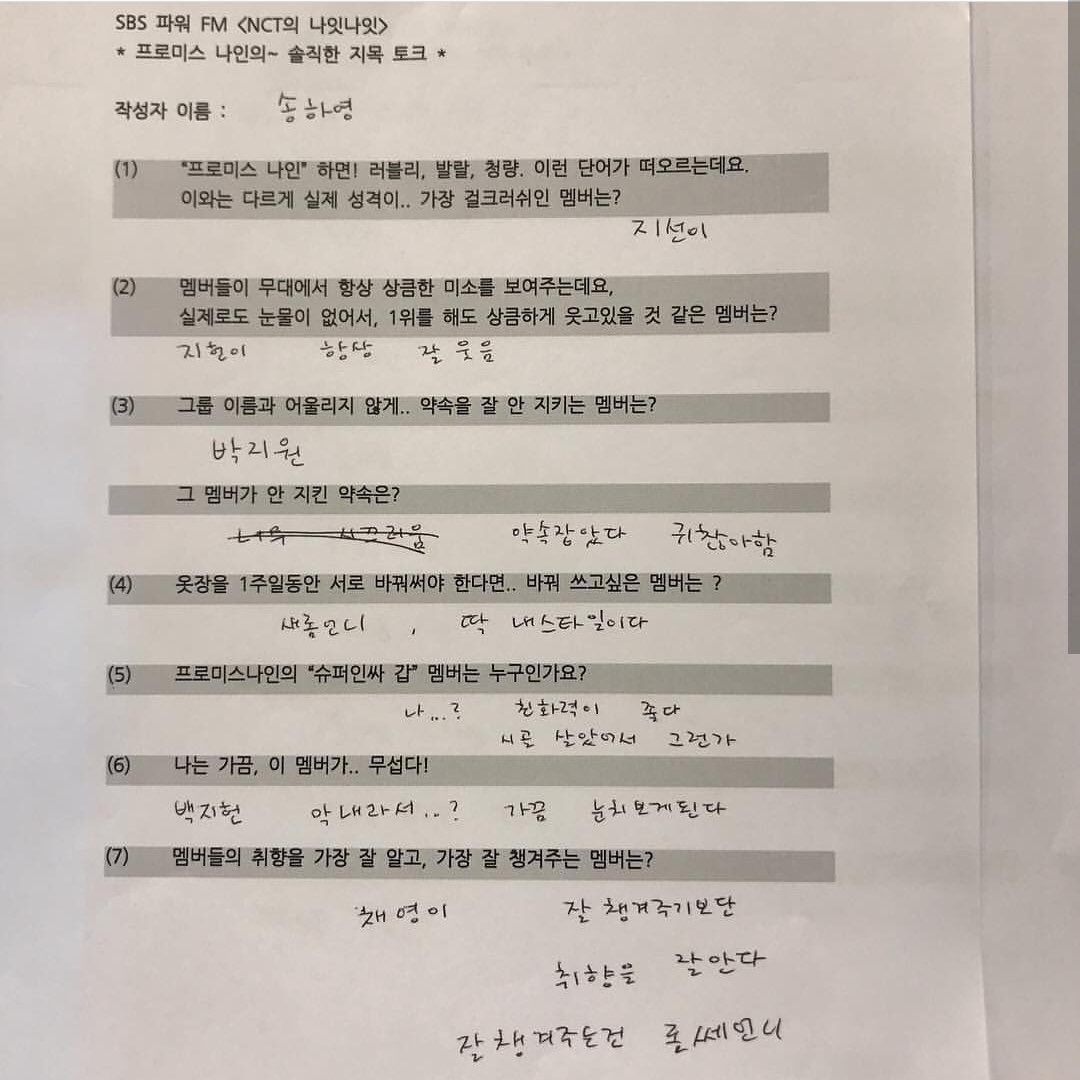 SBS 파워 FM <NCT의 나잇나잇>
* 프로미스 나인의~ 솔직한 지목 토크 *
작성자 이름 : 송하영
(1) "프로미스 나인" 하면! 러블리, 발랄, 청량. 이런 단어가 떠오르는데요.
이와는 다르게 실제 성격이.. 가장 걸크러쉬인 멤버는?
지선이
(2) 멤버들이 무대에서 항상 상큼한 미소를 보여주는데요,
실제로도 눈물이 없어서, 1위를 해도 상큼하게 웃고있을 것 같은 멤버는?
지헌이 항상 잘 웃음
(3) 그룹 이름과 어울리지 않게.. 약속을 잘 안 지키는 멤버는?
박지원
그 멤버가 안 지킨 약속은?
시끄러움 약속잡았다 귀찮아함
(4) 옷장을 1주일동안 서로 바꿔써야 한다면.. 바꿔 쓰고싶은 멤버는 ?
새롬언니 , 딱 내스타일이다
(5) 프로미스나인의 "슈퍼인싸 갑" 멤버는 누구인가요?
나...? 친화력이 좋다
시골 살았어서 그런가
(6) 나는 가끔, 이 멤버가.. 무섭다!
백지헌 막내라서...? 가끔 눈치보게된다
(7) 멤버들의 취향을 가장 잘 알고, 가장 잘 챙겨주는 멤버는?
채영이 잘 챙겨주기보단
취향을 잘안다
잘챙겨주는건 롤쎄언니